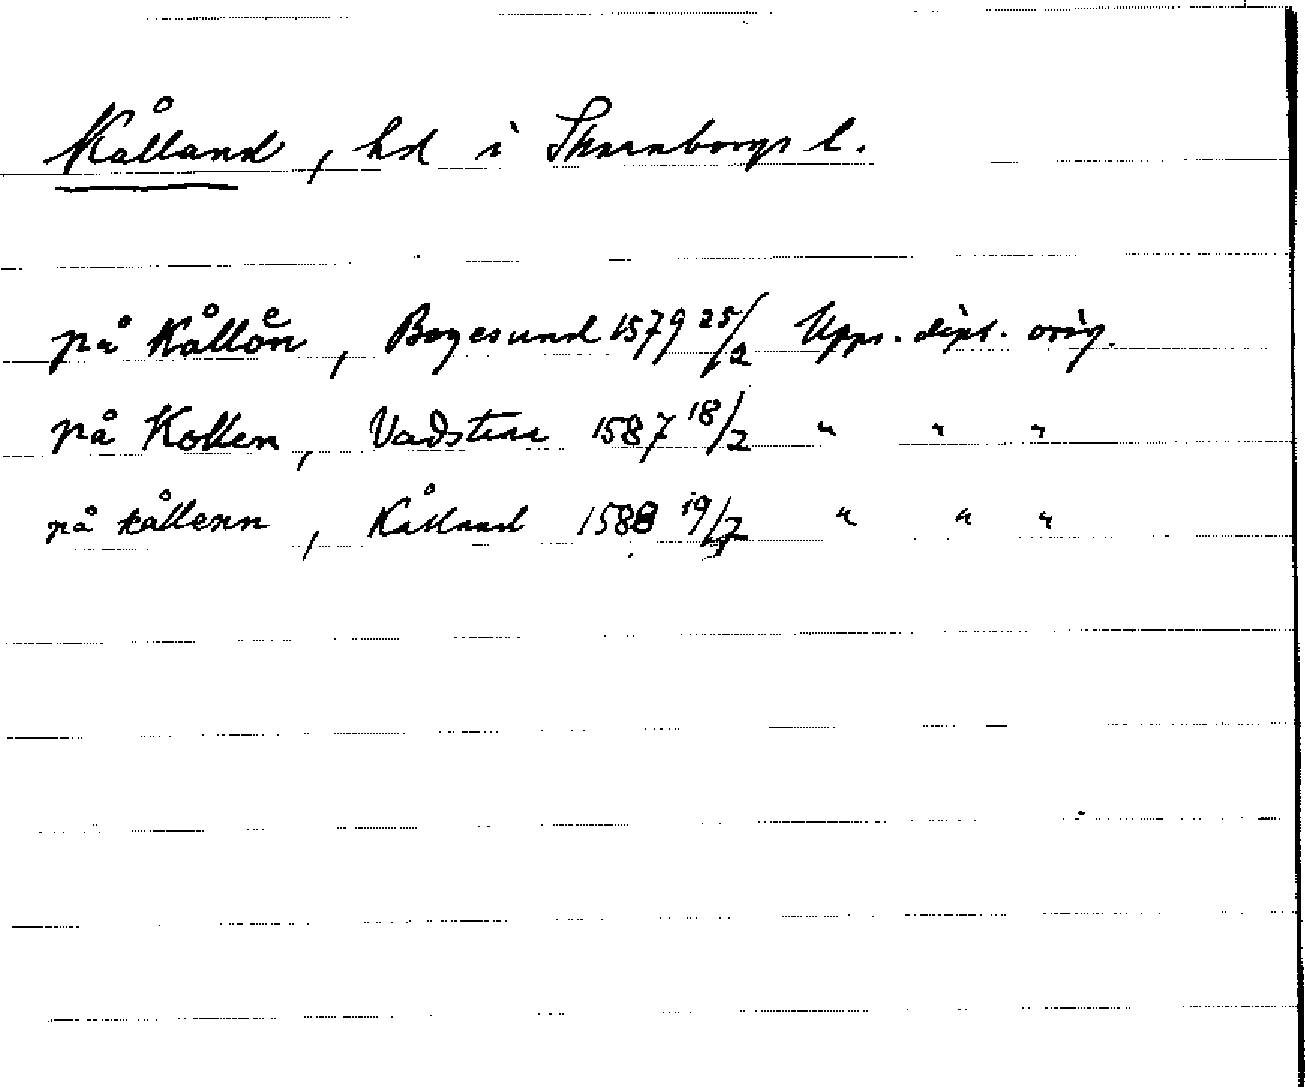 Kålland, hd i Skaraborgs l.
på Kålloͤn, Bogesund 1579 25/2 Upps. dipl. orig.
på Kollen, Vadstena 1587 18/2 " " "
på kållenn, Kålland 1588 19/7 " " "